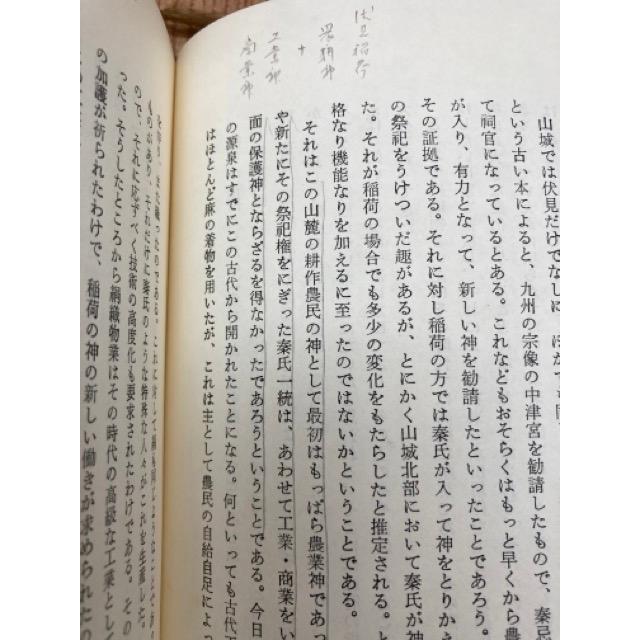 伏見稲荷
農耕神
+
工業神
商業神
山城では伏見だけでなしに
という古い本によると、九州の宗像の中津宮を勧請したもので、秦氏
て祠官になっているとある。これなどもおそらくはもっと早くから
が入り、有力となって、新しい神を勧請したといったことであろう。
その証拠である。それに対し稲荷の方では秦氏が入って神をとりかえ
の祭祀をうけついだ趣があるが、とにかく山城北部において秦氏が神
た。それが稲荷の場合でも多少の変化をもたらしたと推定される。
格なり機能なりを加えるに至ったのではないかということである。
それはこの山麓の耕作農民の神として最初はもっぱら農業神であっ
や新たにその祭祀権をにぎった秦氏一統は、あわせて工業・商業をい
面の保護神とならざるを得なかったであろうということである。今日
の源泉はすでにこの古代から開かれたことになる。何といっても古代
はほとんど麻の着物を用いたが、これは主として農民の自給自足によっ
ものがあり、それだけに秦氏のような特殊な人々がこれを生産した。
ので、それに応ずべく技術の高度化も要求されたわけである。その
った。そうしたところから絹織物業はその時代の高級な工業として
の加護が祈られたわけで、稲荷の神の新しい働きが求められたの